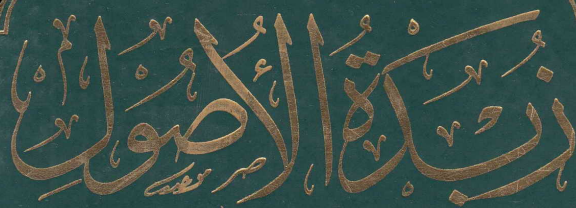 زبدة الأصول